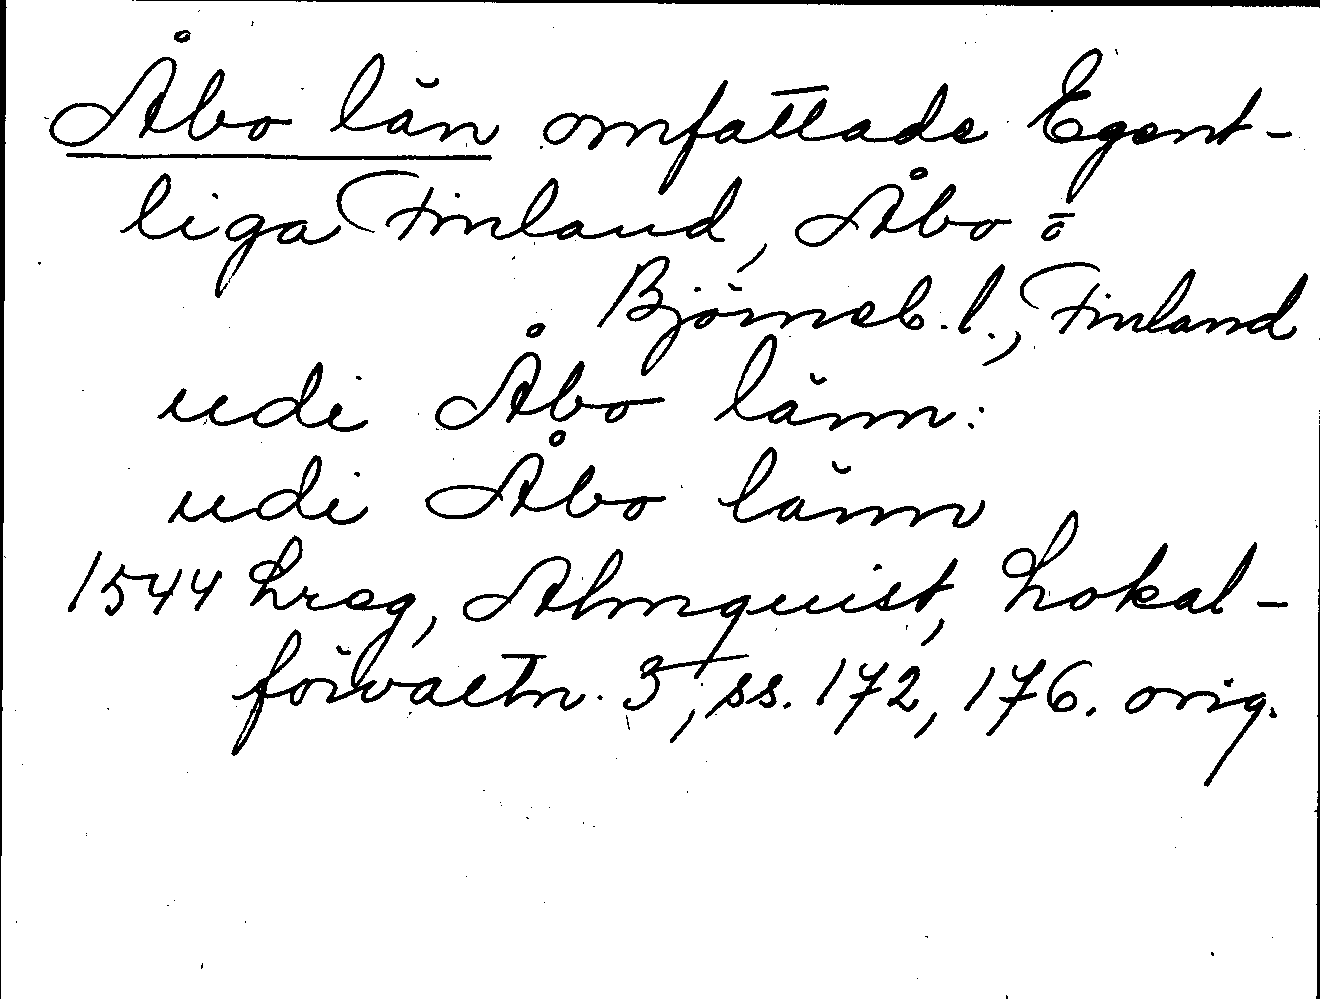 Åbo län omfattade Egent-
liga Finland, Åbo o
Björneb. l., Finland
udi Åbo länn:
udi Åbo länn
1544 Lreg, Almquist, Lokal-
förvaltn. 3, ss. 172, 176. orig.